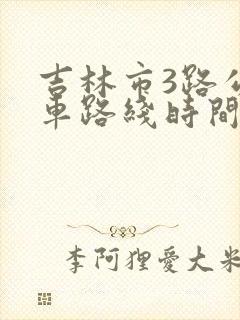 吉林市3路公
車路綫時間
李阿狸愛大米